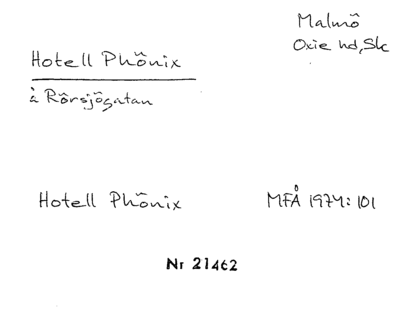 Malmö
Oxie hd, Sk
Hotell Phönix
å Rörsjögatan
Hotell Phönix
MFÅ 1974:101
Nr 21462